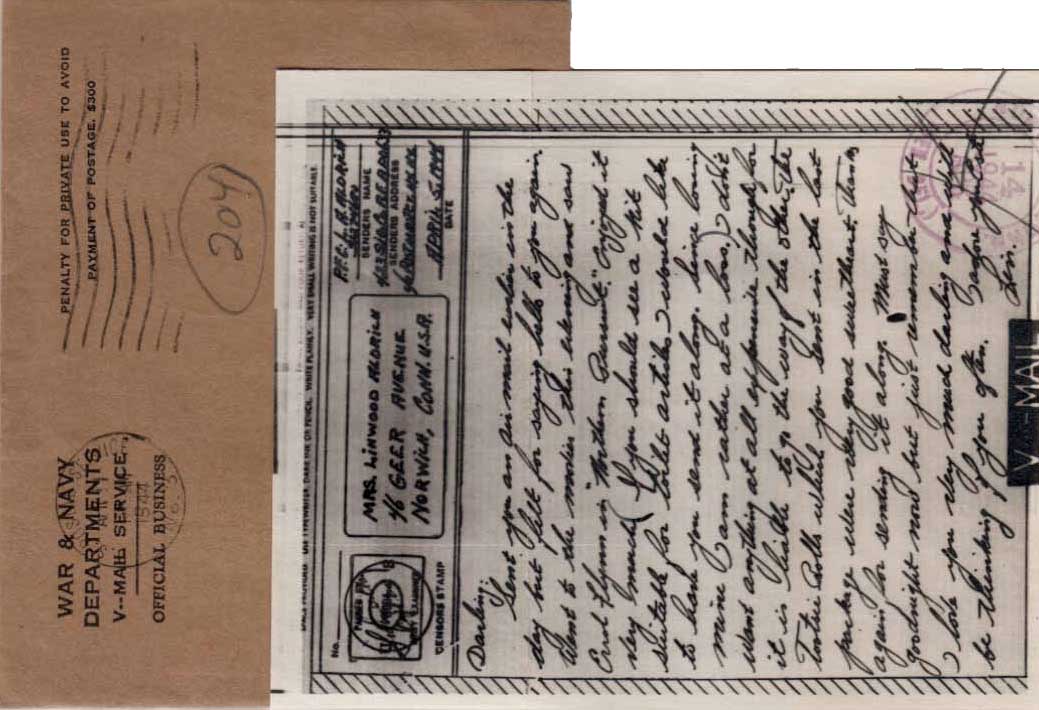 PENALTY FOR PRIVATE USE TO AVOID
PAYMENT OF POSTAGE, $300
204
WAR & NAVY
DEPARTMENTS
V--MAIL SERVICE
OFFICIAL BUSINESS
No.
CENSORS STAMP
MRS. LINWOOD ALDRICH
16 GEER AVENUE
NORWICH, CONN. U.S.A.
PFC. L. A. ALDRICH
SENDERS NAME
SENDERS ADDRESS
APRIL 5, 1944
DATE
Darling:
Sent you an air mail earlier in the
day but felt for saying hello to you again.
Went to the movies this evening and saw
Errol Flynn in "Northern Pursuit." enjoyed it
very much. (If you should see a kit
suitable for toilet articles I would like
to have you send it along. Since losing
mine I am rather at a loss.) I don't
want anything at all expensive though for
it is liable to go the way of the other. The
Tootsie Rolls which you sent in the last
package were very good sweetheart. Thanks
again for sending it along. Must say
goodnight now but just remember that
I love you very much darling and will
be thinking of you often.
Lin.
V---MAIL